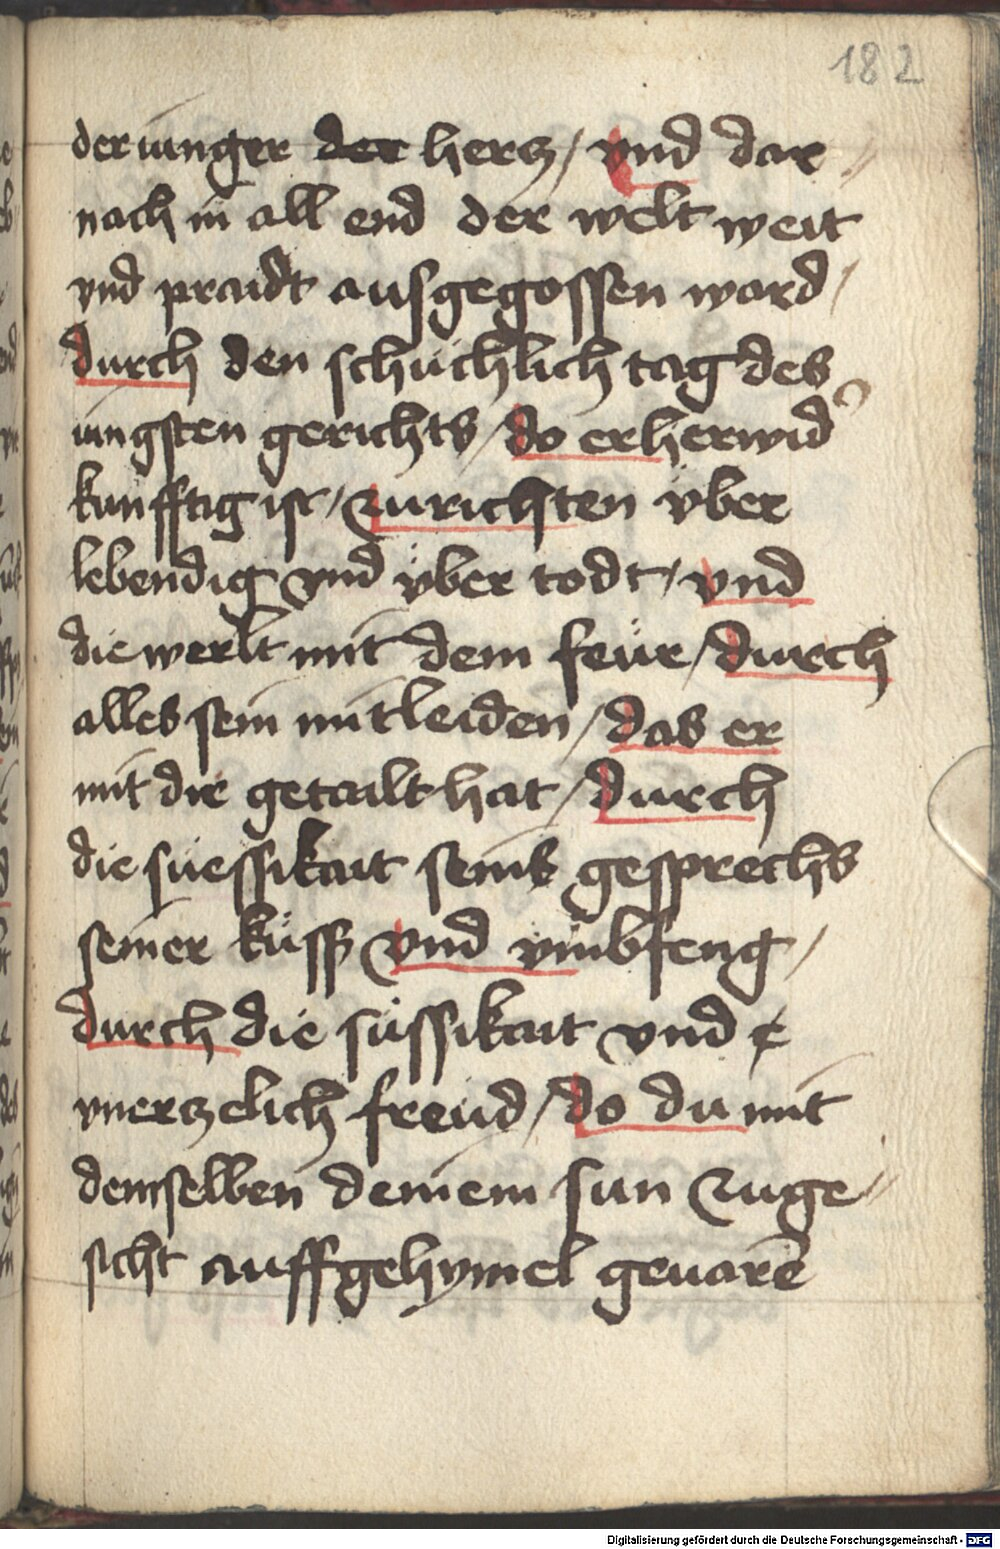 182
der iunger der hercz / vnd dar //
nach in all end der welt weit
vnd praidt ausgegossen ward /
durch den schüchlich tag des
iungsten gerichts / do er herwid᾽
kunfftig ist / zurichten vber
lebendig vnd vber todt / vnd
die werlt mit dem feür / durch
alles sein mitleiden / das er
mit dir getailt hat / durch
die suessikait seins gesprechs
seiner küss vnd vmbfeng /
durch die süssikait vnd
vnerczelich freüd / do du mit
demselben deinem sun zuge //
sicht auff gehymel geuarē
Digitalisierung gefördert durch die Deutsche Forschungsgemeinschaft - DFG